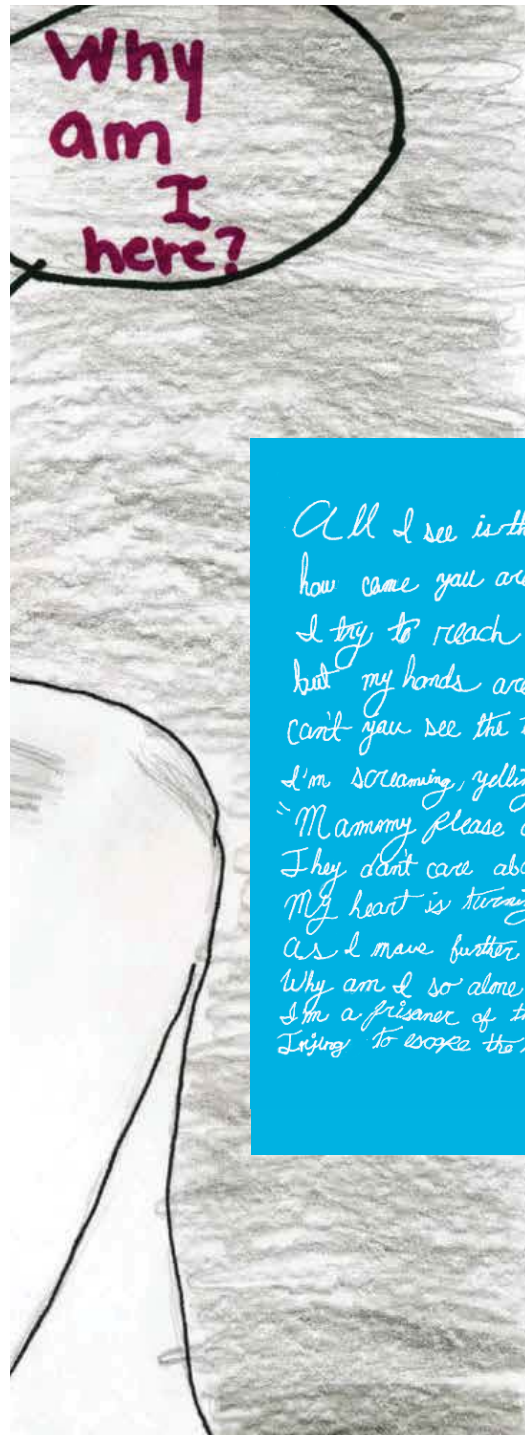 Why
am
I
here?
All I see is th
how come you are
I try to reach
but my hands are
can't you see the
I'm screaming, yelling
"Mammy please
They don't care abo
My heart is turning
as I move further
Why am I so alone
I'm a prisoner of th
Trying to escape the